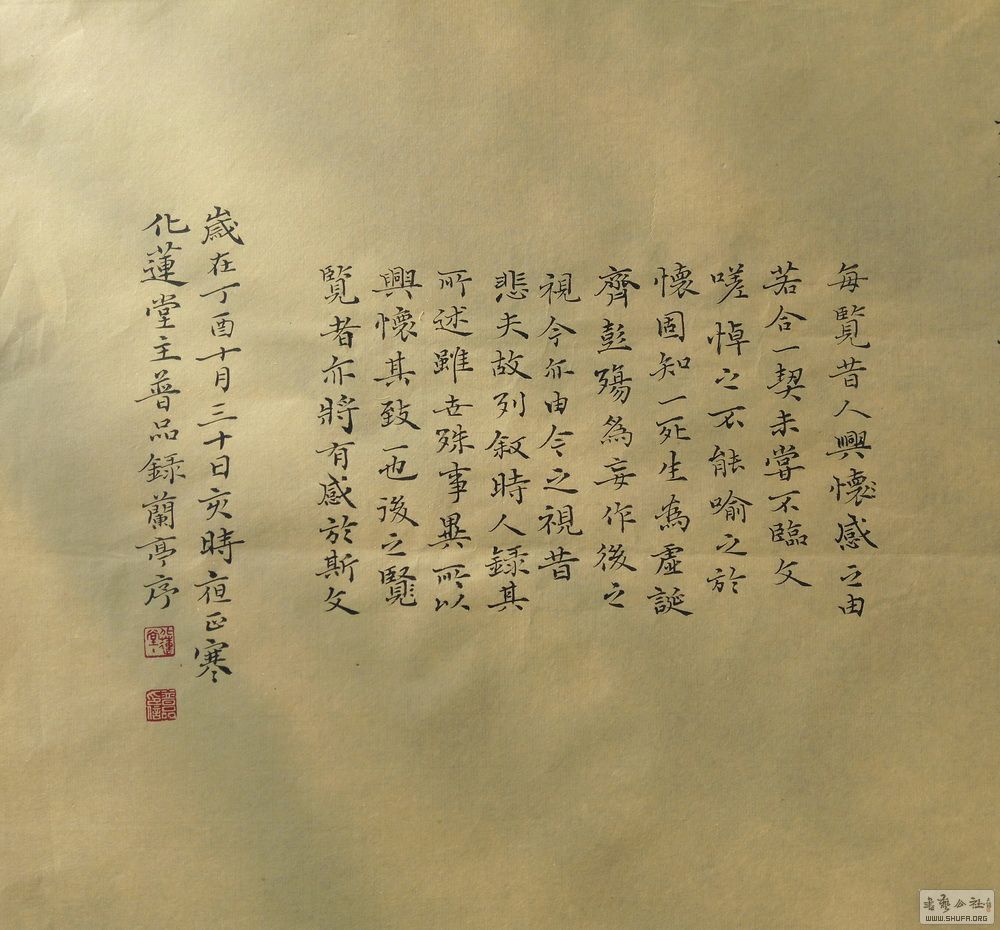 每覽昔人興懷感之由
若合一契未嘗不臨文
嗟悼之不能喻之於
懷固知一死生為虛誕
齊彭殤為妄作後之
視今亦由今之視昔
悲夫故列敘時人録其
所述雖世殊事異所以
興懷其致一也後之覽
覽者亦將有感於斯文
歲在丁酉十月三十日亥時夜正寒
化蓮堂主普品録蘭亭序
化蓮堂
普品印信
書藝公社
WWW.SHUFA.ORG